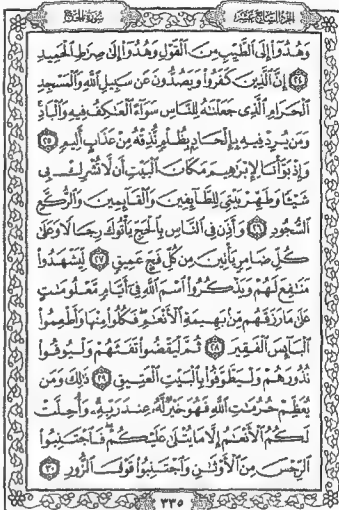 الجزء السابع عشر
سورة الحج
وَهُدُوٓا۟ إِلَى ٱلطَّيِّبِ مِنَ ٱلْقَوْلِ وَهُدُوٓا۟ إِلَىٰ صِرَٰطِ ٱلْحَمِيدِ
﴿٢٤﴾ إِنَّ ٱلَّذِينَ كَفَرُوا۟ وَيَصُدُّونَ عَن سَبِيلِ ٱللَّهِ وَٱلْمَسْجِدِ
ٱلْحَرَامِ ٱلَّذِى جَعَلْنَٰهُ لِلنَّاسِ سَوَآءً ٱلْعَٰكِفُ فِيهِ وَٱلْبَادِ
وَمَن يُرِدْ فِيهِ بِإِلْحَادٍۭ بِظُلْمٍ نُّذِقْهُ مِنْ عَذَابٍ أَلِيمٍ ﴿٢٥﴾
وَإِذْ بَوَّأْنَا لِإِبْرَٰهِيمَ مَكَانَ ٱلْبَيْتِ أَن لَّا تُشْرِكْ بِى
شَيْـًٔا وَطَهِّرْ بَيْتِىَ لِلطَّآئِفِينَ وَٱلْقَآئِمِينَ وَٱلرُّكَّعِ
ٱلسُّجُودِ ﴿٢٦﴾ وَأَذِّن فِى ٱلنَّاسِ بِٱلْحَجِّ يَأْتُوكَ رِجَالًا وَعَلَىٰ
كُلِّ ضَامِرٍ يَأْتِينَ مِن كُلِّ فَجٍّ عَمِيقٍ ﴿٢٧﴾ لِّيَشْهَدُوا۟
مَنَٰفِعَ لَهُمْ وَيَذْكُرُوا۟ ٱسْمَ ٱللَّهِ فِىٓ أَيَّامٍ مَّعْلُومَٰتٍ
عَلَىٰ مَا رَزَقَهُم مِّنۢ بَهِيمَةِ ٱلْأَنْعَٰمِ فَكُلُوا۟ مِنْهَا وَأَطْعِمُوا۟
ٱلْبَآئِسَ ٱلْفَقِيرَ ﴿٢٨﴾ ثُمَّ لْيَقْضُوا۟ تَفَثَهُمْ وَلْيُوفُوا۟
نُذُورَهُمْ وَلْيَطَّوَّفُوا۟ بِٱلْبَيْتِ ٱلْعَتِيقِ ﴿٢٩﴾ ذَٰلِكَ وَمَن
يُعَظِّمْ حُرُمَٰتِ ٱللَّهِ فَهُوَ خَيْرٌ لَّهُۥ عِندَ رَبِّهِۦ وَأُحِلَّتْ
لَكُمُ ٱلْأَنْعَٰمُ إِلَّا مَا يُتْلَىٰ عَلَيْكُمْ فَٱجْتَنِبُوا۟
ٱلرِّجْسَ مِنَ ٱلْأَوْثَٰنِ وَٱجْتَنِبُوا۟ قَوْلَ ٱلزُّورِ ﴿٣٠﴾
٣٣٥